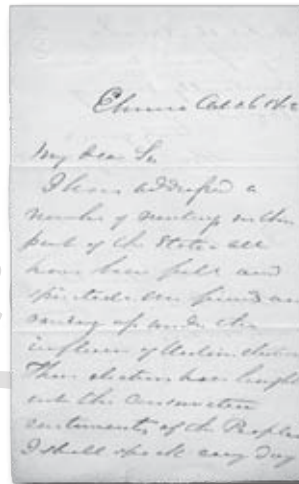 Elmira Oct 26 186
My Dear Sir
I have addressed a
number of meetings in this
part of the State all
have been full and
spirited our friends are
up under the
influence of election
These elections have brought
out the Conservative
sentiments of the People
I shall speak every day